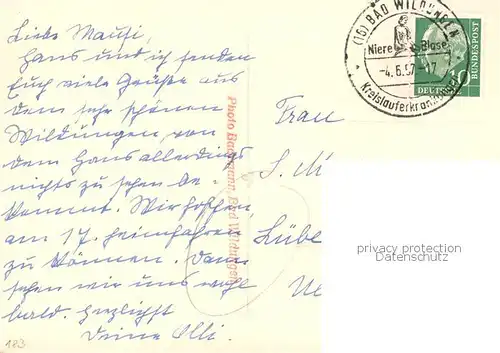 Liebe Mausi,
Hans und ich senden
Euch viele Grüße aus
dem sehr schönen
Wildungen, von
dem Hans allerdings
nichts zu sehen be-
kommt. Wir hoffen,
am 17. heimfahren
zu können. Dann
sehen wir uns wohl
bald. Herzlichst
Deine Olli.
183
Photo Bachmann, Bad Wildungen
(16) BAD WILDUNGEN
Niere Blase
-4.6.57-17
Kreislauferkrankungen
DEUTSCHE
BUNDESPOST
10
Frau
S. M
Lübe
privacy protection
Datenschutz